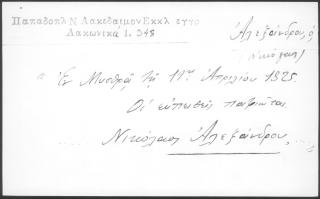 Παπαδοπλ Ν Λακεδαιμον Εκκλ εγγρ
Λακωνικα 1. 348
Ἀλεξάνδρου, ὁ
Νικόλαος
Ἐν Μυσθρᾷ τῇ 11ῃ Ἀπριλίου 1825.
Οἱ εὐπειθεῖς πατριῶται
Νικόλαος Ἀλεξάνδρου